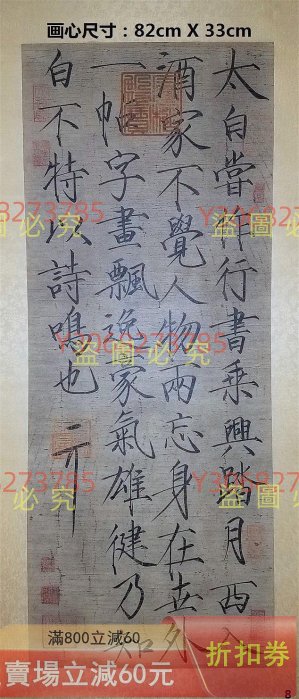 画心尺寸：82cm X 33cm
太白嘗作行書乘興踏月西入
酒家不覺人物兩忘身在世外
一帖字畫飄逸豪氣雄健乃知
白不特以詩鳴也
8273785
盜圖必究
盜圖必究
8273785
盜圖必究
8273785
盜圖必究
滿800立減60
賣場立減60元
折扣券